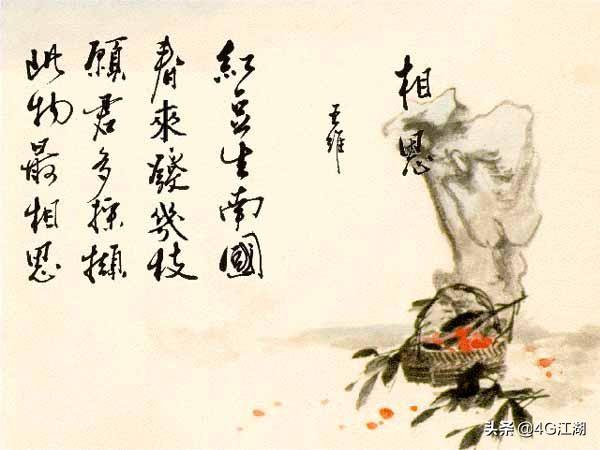 相思
王維
紅豆生南國
春來發幾枝
願君多採擷
此物最相思
头条 @4G江湖